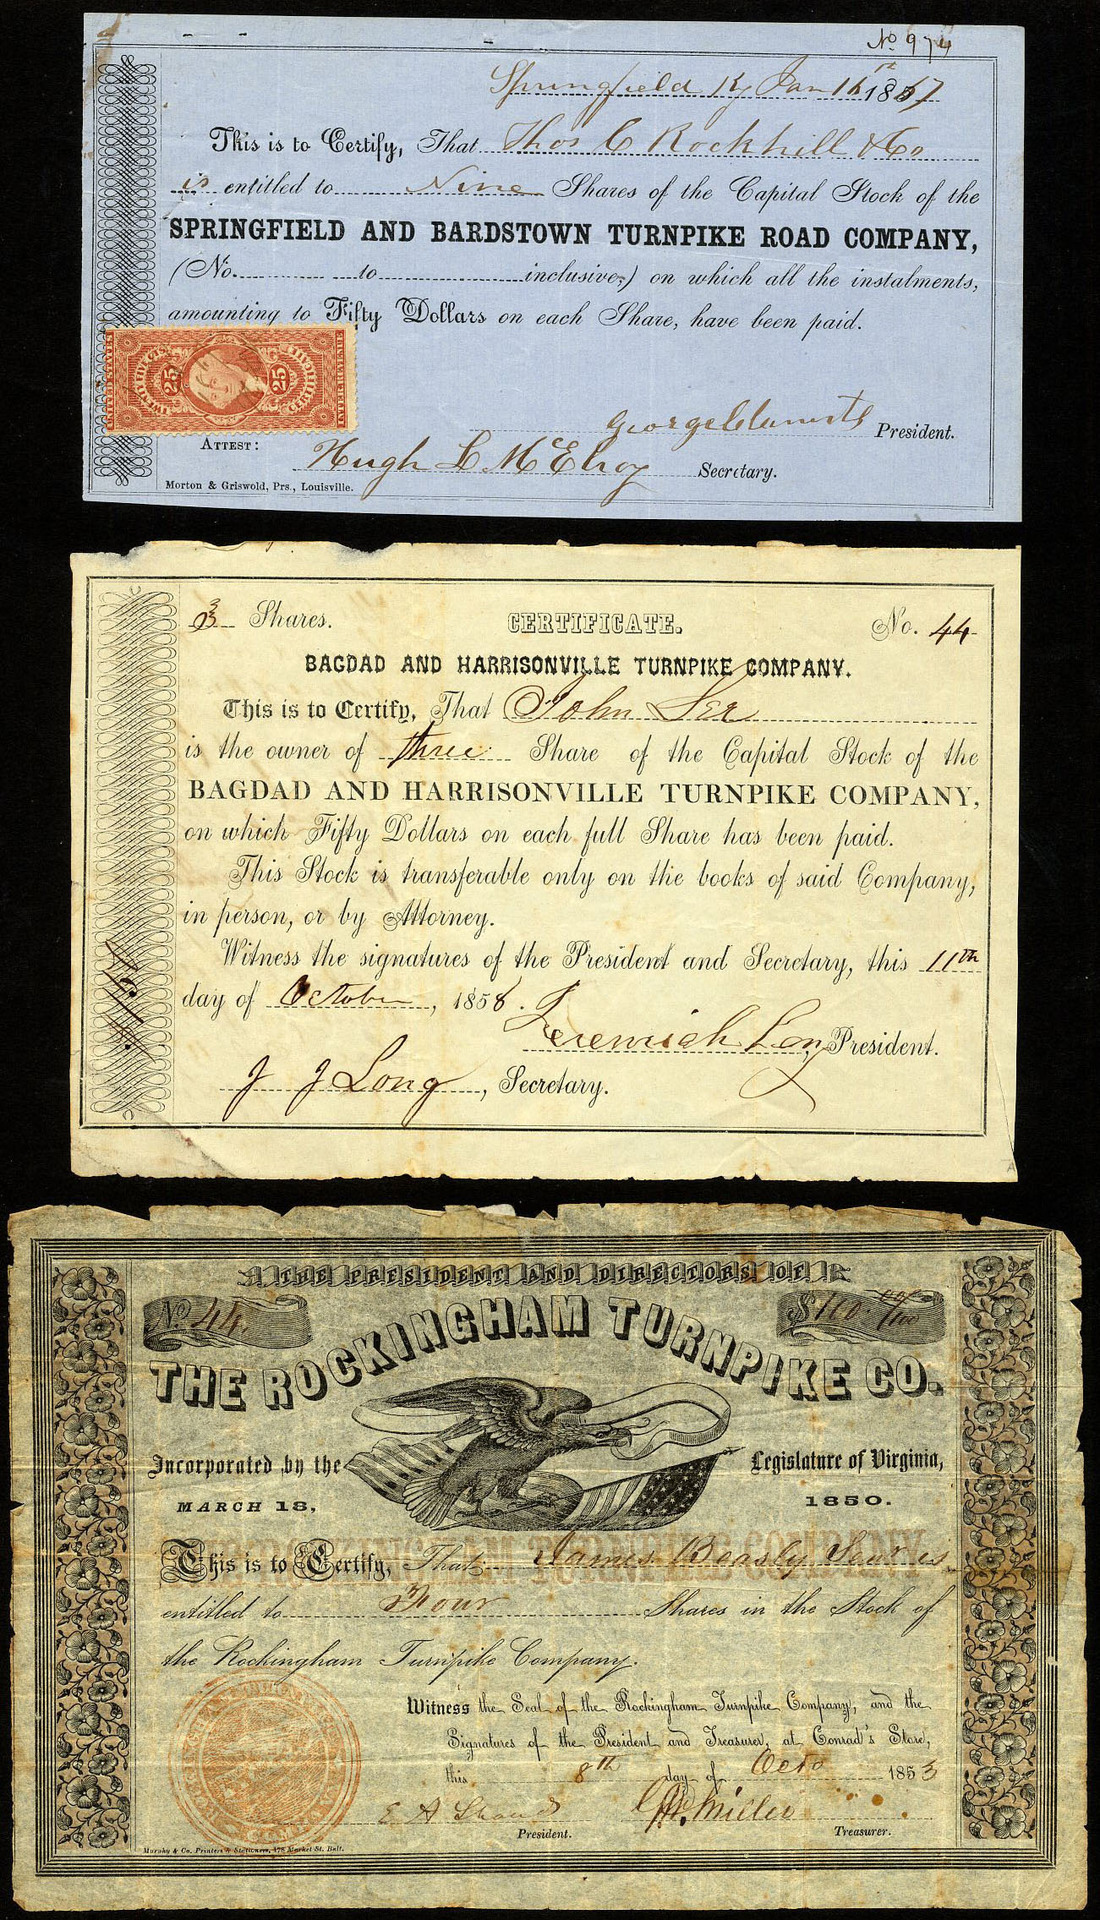 No 974
Springfield Ky Jan 1st 1867
This is to Certify, That Thos C Rockhill & Co
is entitled to Nine Shares of the Capital Stock of the
SPRINGFIELD AND BARDSTOWN TURNPIKE ROAD COMPANY,
(No. to inclusive,) on which all the instalments,
amounting to Fifty Dollars on each Share, have been paid.
25 25
President.
ATTEST: Hugh L McElroy Secretary.
Morton & Griswold, Prs., Louisville.
3 Shares. CERTIFICATE. No. 44
BAGDAD AND HARRISONVILLE TURNPIKE COMPANY.
This is to Certify, That John
is the owner of three Share of the Capital Stock of the
BAGDAD AND HARRISONVILLE TURNPIKE COMPANY,
on which Fifty Dollars on each full Share has been paid.
This Stock is transferable only on the books of said Company,
in person, or by Attorney.
Witness the signatures of the President and Secretary, this 11th
day of October, 1858.
Jeremiah Long President.
J J Long, Secretary.
THE PRESIDENT AND DIRECTORS OF
No 44. $100 00/100
THE ROCKINGHAM TURNPIKE CO.
Incorporated by the Legislature of Virginia,
MARCH 18, 1850.
This is to Certify, That James Beasly is
entitled to Four Shares in the Stock of
the Rockingham Turnpike Company.
Witness the Seal of the Rockingham Turnpike Company, and the
Signatures of the President and Treasurer, at Conrad's Store,
this 8th day of Octo 1853
Miller
President. Treasurer.
Murphy & Co. Printers & Stationers, 178 Market St. Balt.